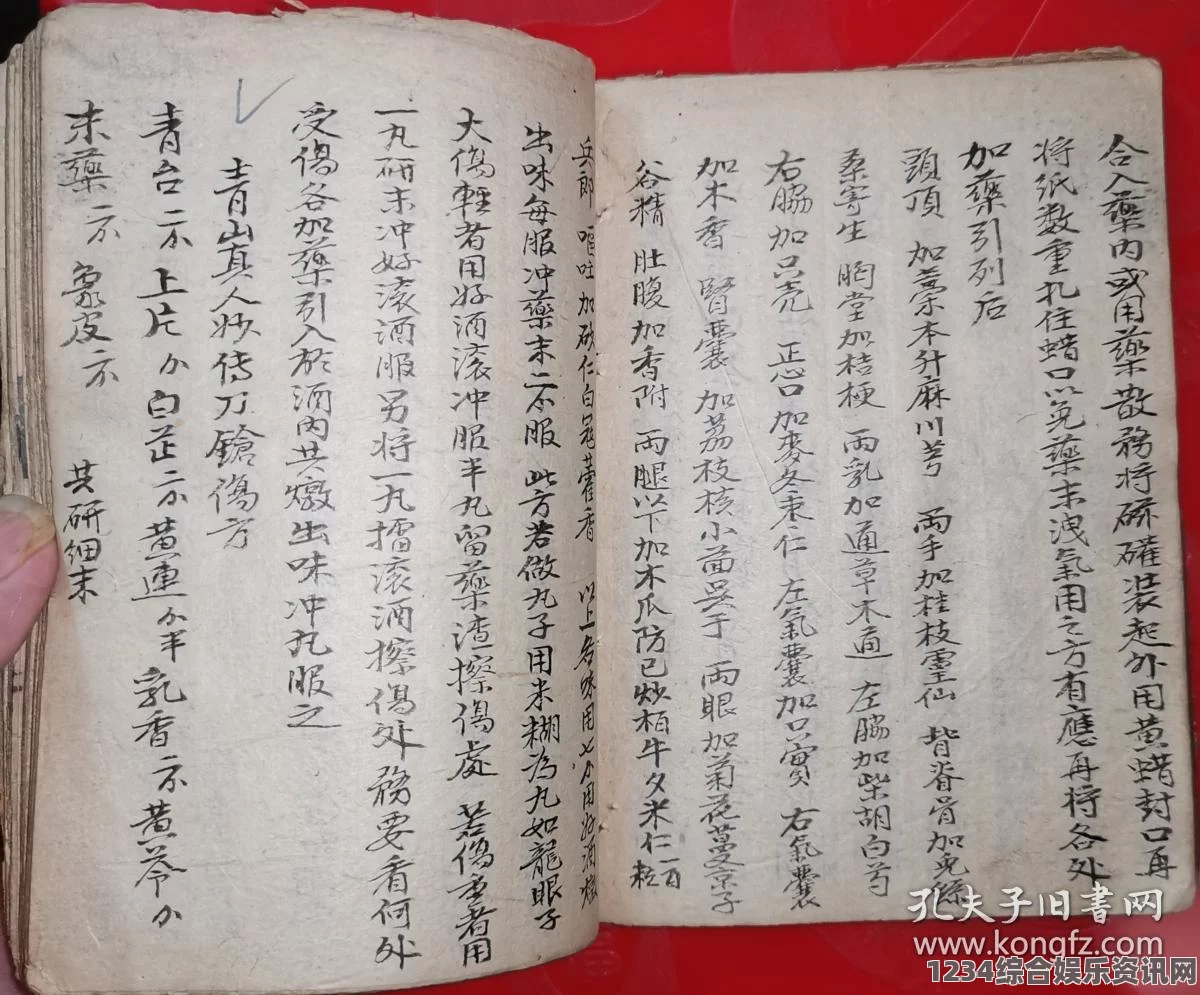 合入藥內或用藥散務將磁礶装起外用黄蜡封口再
将纸数重扎住蜡口以免藥末洩氣用之方有應再将各处
加藥引列后
頭頂 加藁本升麻川芎 両手加桂枝靈仙 背脊骨加兎絲
桑寄生 胸堂加桔梗 両乳加通草木通 左脇加柴胡白芍
右脇加只壳 正心口加麥冬枣仁 左氣囊加只實 右氣囊
加木香 腎囊 加荔枝核小茴吴于 両眼加菊花蔓京子
谷精 肚腹加香附 両腿以下加木瓜防已炒栢牛夕米仁一百粒
兵郎 嘔吐加砂仁白蔻藿香 以上各味用七个用好酒燉
出味每服冲藥末二不服 此方若做丸子用米糊為丸如龍眼子
大傷輕者用好酒滚冲服半丸留藥渣擦傷處 若傷重者用
一丸研末冲好滚酒服另将一丸擂滚酒擦傷处 務要看何处
受傷各加藥引入於酒內共燉出味冲丸服之
青山真人妙传刀鎗傷方
青台 上片 白芷 黄連 半 乳香 黄芩
末藥 象皮 共研细末
孔夫子旧书网
www.kongfz.com
1234综合娱乐资讯网